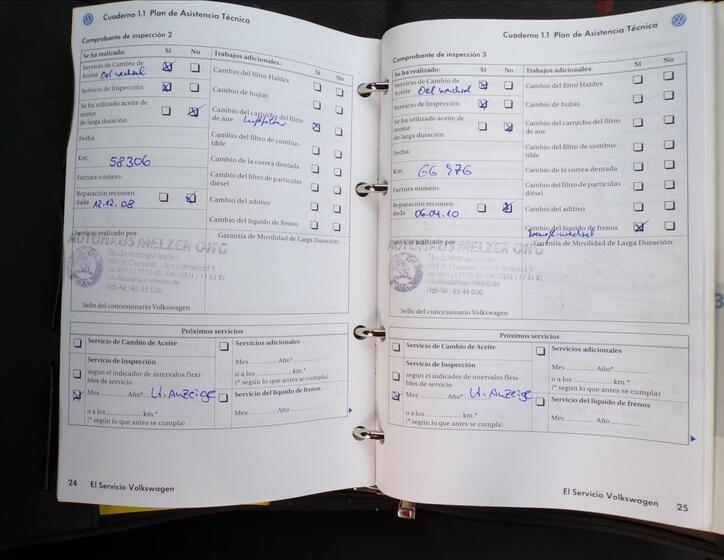 Cuaderno 1.1 Plan de Asistencia Técnica
Comprobante de inspección 2
Se ha realizado: Sí No
Servicio de Cambio de
Aceite Öl wechsel
Servicio de Inspección
Se ha utilizado aceite de
motor
de larga duración
Fecha:
Km: 58306
Factura número:
Reparación recomen-
dada 12.12.08
Trabajos adicionales: Sí No
Cambio del filtro Haldex
Cambio de bujías
Cambio del cartucho del filtro
de aire Luftfilter
Cambio del filtro de combus-
tible
Cambio de la correa dentada
Cambio del filtro de partículas
diésel
Cambio del aditivo
Cambio del líquido de frenos
Servicio realizado por:
Garantía de Movilidad de Larga Duración:
AUTOHAUS MELZER OHG
Hdl-Nr.: 65 45 000
Sello del concesionario Volkswagen
Próximos servicios
Servicio de Cambio de Aceite
Servicio de Inspección
según el indicador de intervalos flexi-
bles de servicio
Mes ........ Año* .. Lt. Anzeige
o a los ............ km.*
(* según lo que antes se cumpla)
Servicios adicionales
Mes ............ Año* ............
o a los .................. km.*
(* según lo que antes se cumpla)
Servicio del líquido de frenos
Mes ............ Año ............
24 El Servicio Volkswagen
Cuaderno 1.1 Plan de Asistencia Técnica
Comprobante de inspección 3
Se ha realizado: Sí No
Servicio de Cambio de
Aceite Öl wechsel
Servicio de Inspección
Se ha utilizado aceite de
motor
de larga duración
Fecha:
Km: 66 976
Factura número:
Reparación recomen-
dada 06.04.10
Trabajos adicionales: Sí No
Cambio del filtro Haldex
Cambio de bujías
Cambio del cartucho del filtro
de aire
Cambio del filtro de combus-
tible
Cambio de la correa dentada
Cambio del filtro de partículas
diésel
Cambio del aditivo
Cambio del líquido de frenos
Servicio realizado por:
Garantía de Movilidad de Larga Duración:
AUTOHAUS MELZER OHG
Hdl-Nr.: 65 45 000
Sello del concesionario Volkswagen
Próximos servicios
Servicio de Cambio de Aceite
Servicio de Inspección
según el indicador de intervalos flexi-
bles de servicio
Mes ........ Año* .. Lt. Anzeige
o a los ............ km.*
(* según lo que antes se cumpla)
Servicios adicionales
Mes ............ Año* ............
o a los .................. km.*
(* según lo que antes se cumpla)
Servicio del líquido de frenos
Mes ............ Año ............
El Servicio Volkswagen 25